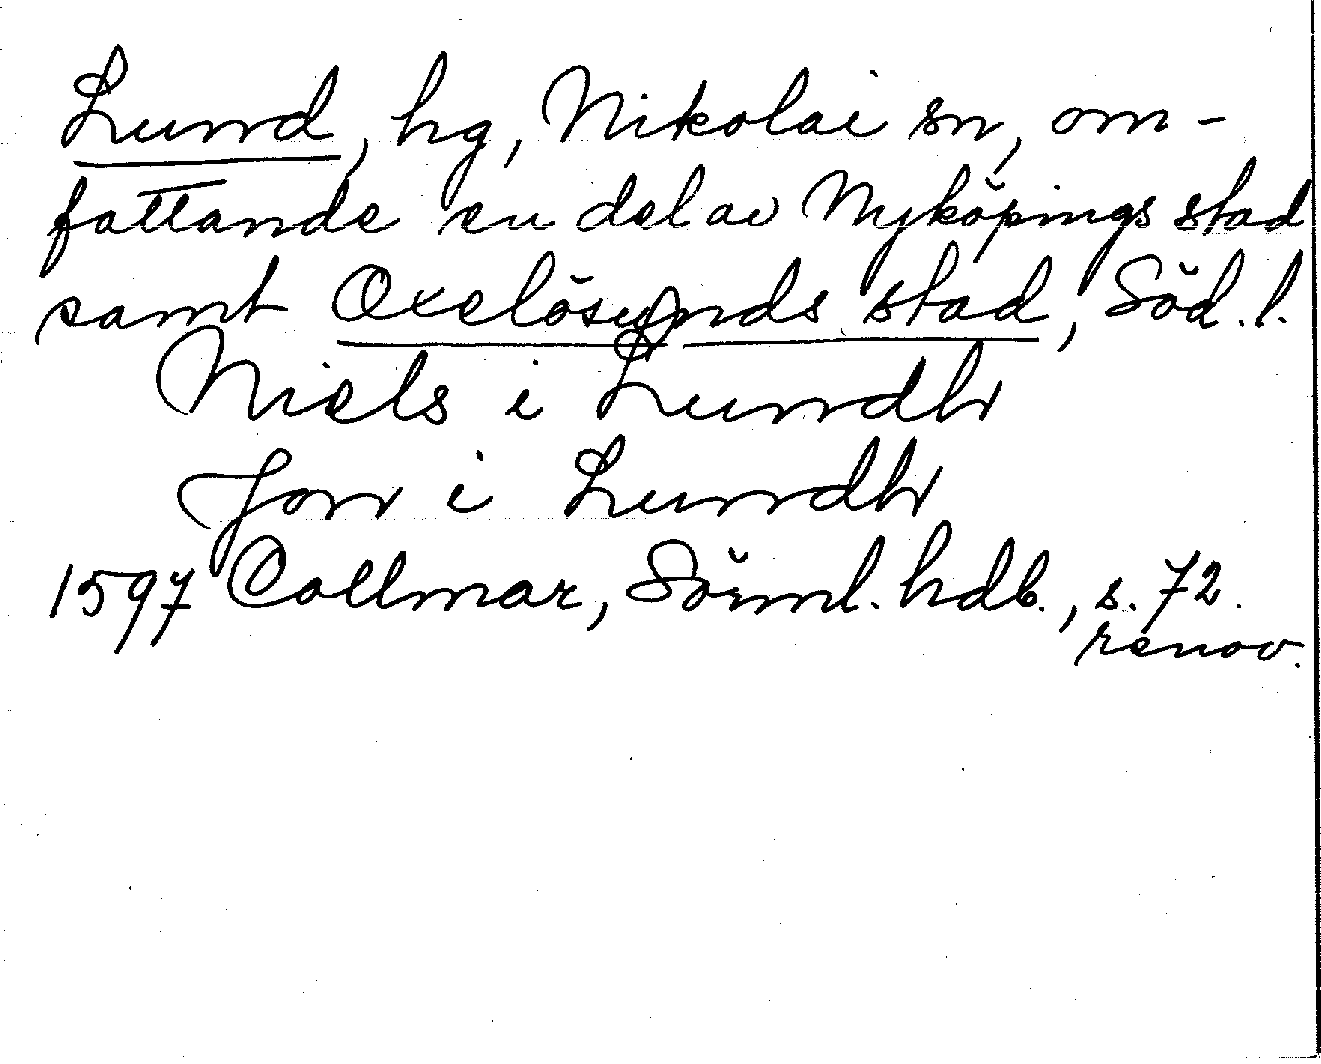 Lund, hg, Nikolai sn, om-
fattande en del av Nyköpings stad
samt Oxelösunds stad, Söd. l.
Niels i Lundh
Jon i Lundh
1597 Collmar, Sörml. hdb., s. 72.
renov.